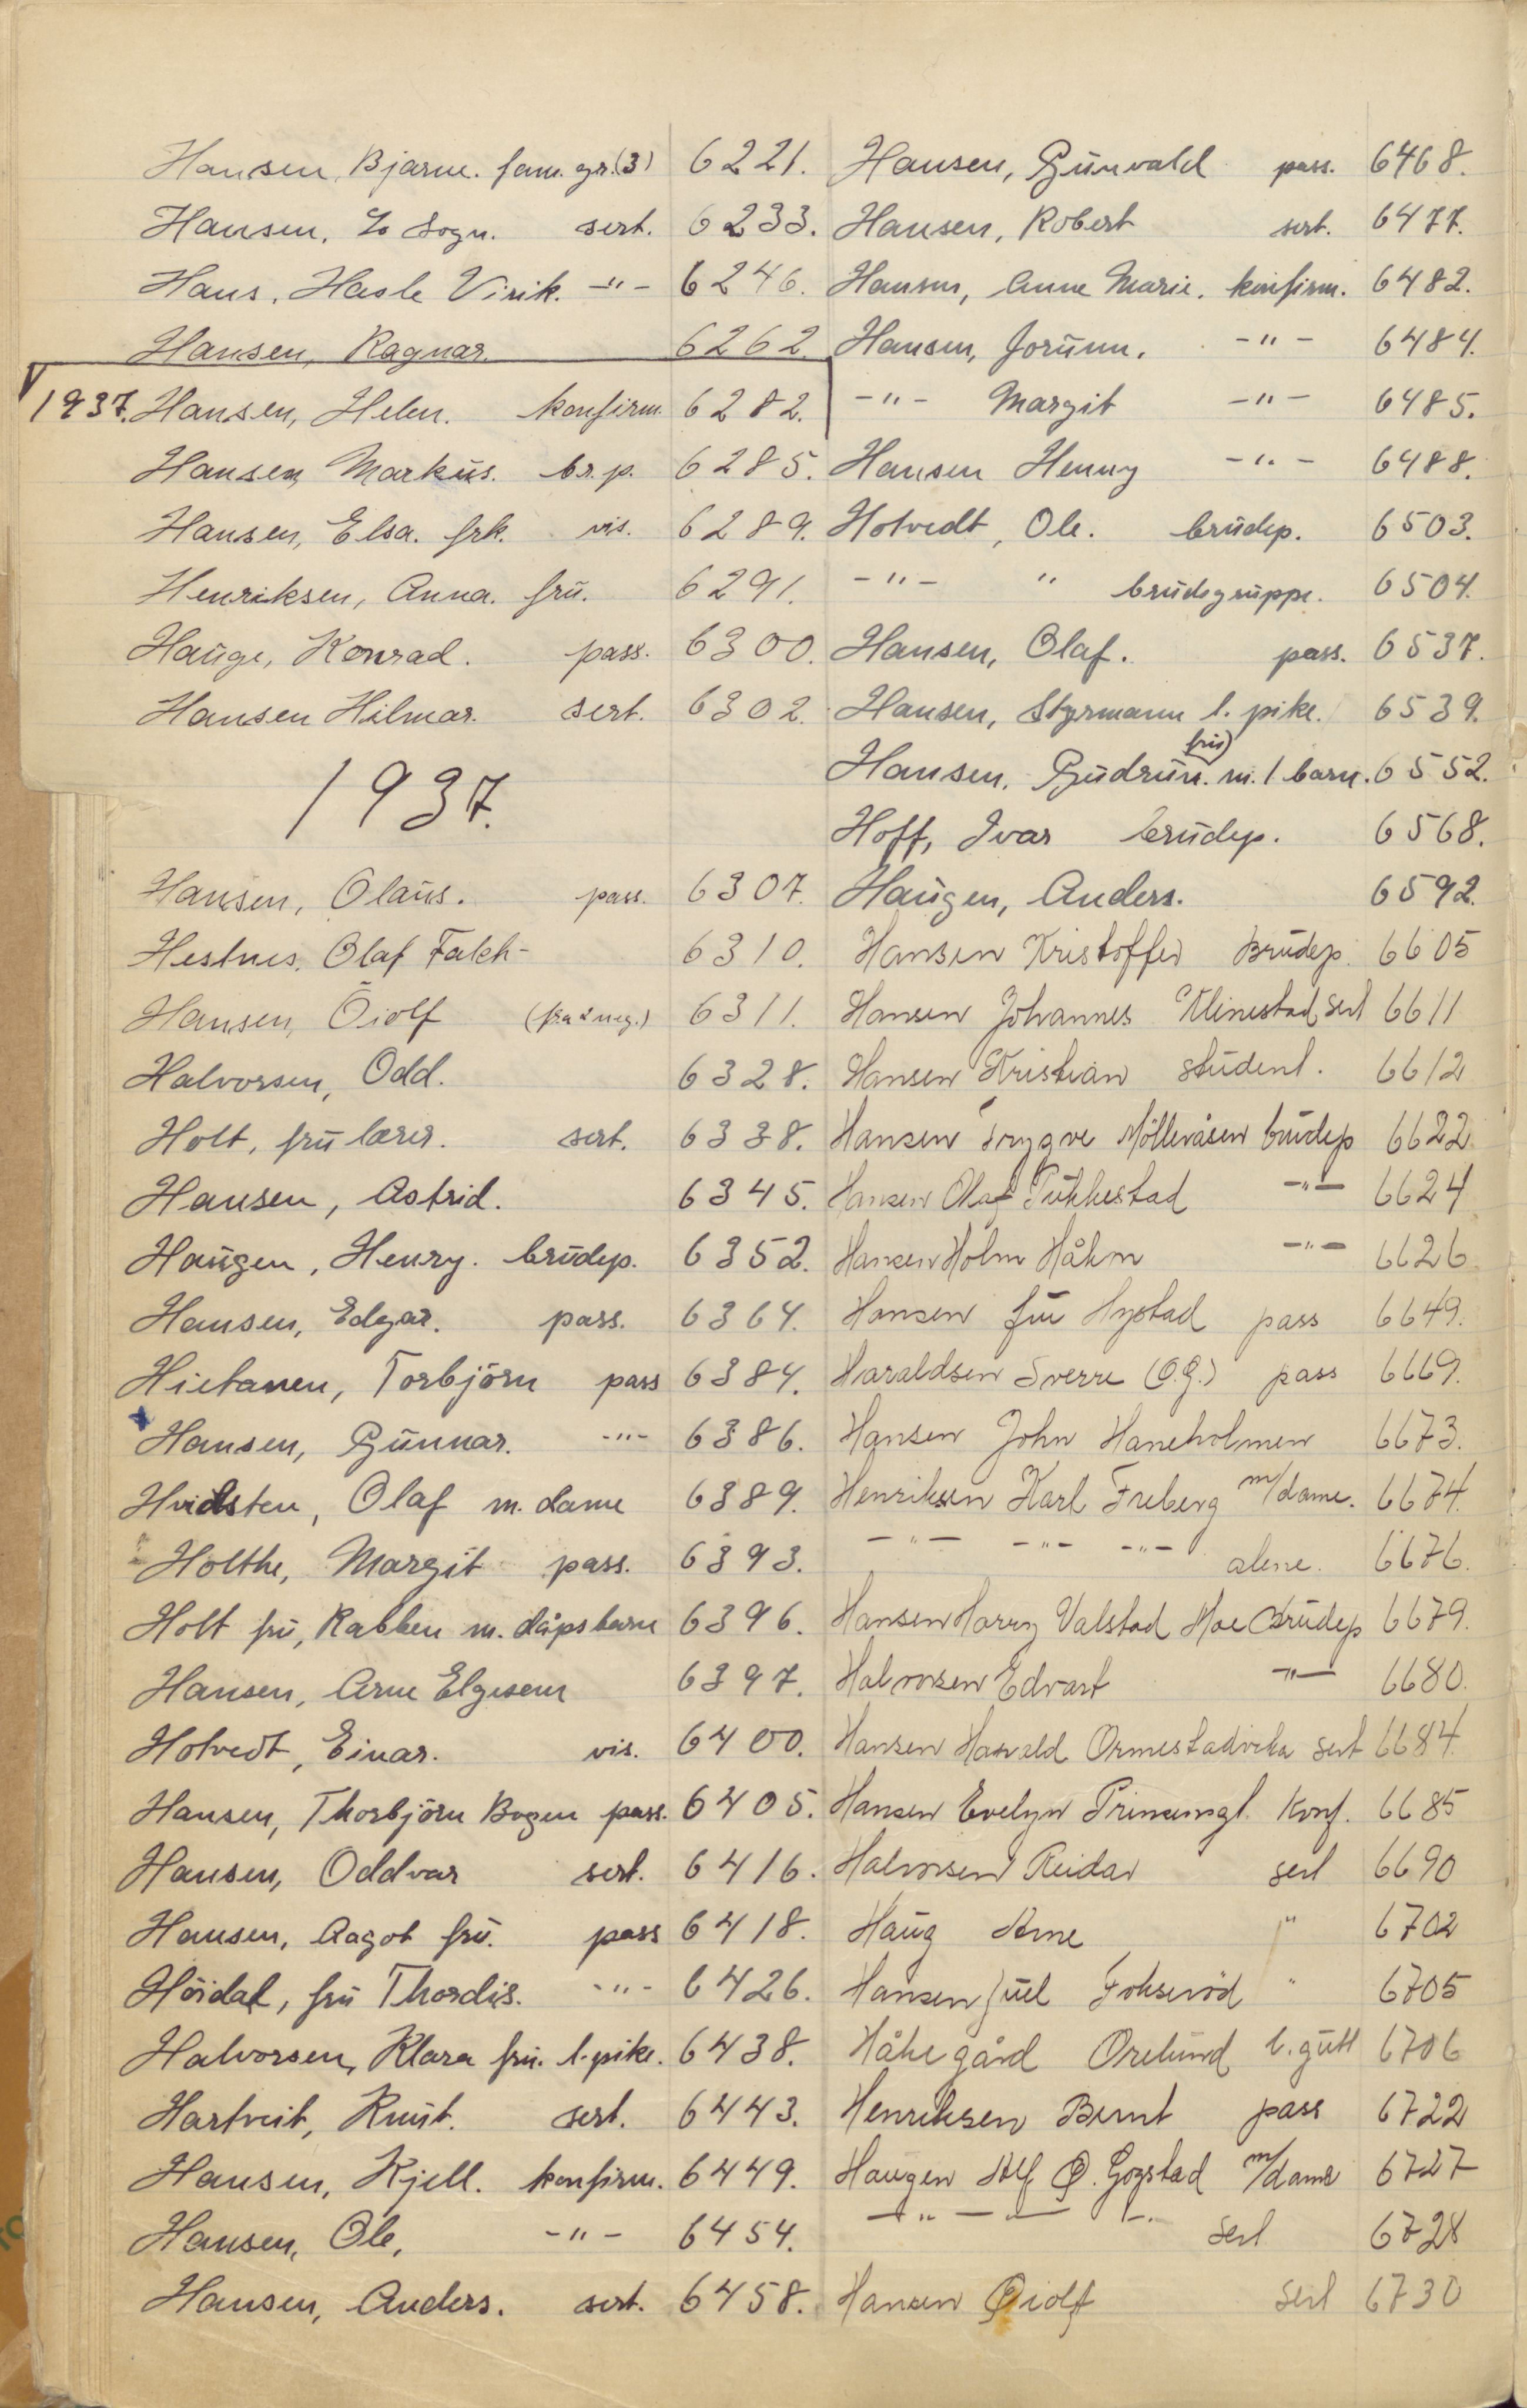 Hansen, Bjarne. fam. gr. (3) 6221.
Hansen, Lo Sogn. sert. 6233.
Hans, Hasle Virik. -"- 6246.
Hansen, Ragnar. 6262.
1937. Hansen, Helen. konfirm. 6282.
Hansen, Markus. br. p. 6285.
Hansen, Elsa. frk. vis. 6289.
Henriksen, Anna. frū. 6291.
Haūge, Konrad. pass. 6300.
Hansen Hilmar. sert. 6302.
1937.
Hansen, Olaūs. pass. 6307.
Hestnes, Olaf Falch- 6310.
Hansen, Öiolf 6311.
Halvorsen, Odd. 6328.
Holt, frū lærer. sert. 6338.
Hansen, Astrid. 6345.
Haūgen, Henry. brūdep. 6352.
Hansen, Edgar. pass. 6364.
Hietanen, Torbjörn pass 6384.
Hansen, Gūnnar. -"- 6386.
Hvidsten, Olaf m. dame 6389.
Holthe, Margit pass. 6393.
Holt frū, Rabben m. dåpsbarn 6396.
Hansen, Arne Elgesem 6397.
Hotvedt, Einar. vis. 6400.
Hansen, Thorbjörn Bogen pass. 6405.
Hansen, Oddvar sert. 6416.
Hansen, Aagot frū. pass 6418.
Höidal, frū Thordis. -"- 6426.
Halvorsen, Klara frū. l. pike. 6438.
Hartveit, Knūt. sert. 6443.
Hansen, Kjell. konfirm. 6449.
Hansen, Ole, -"- 6454.
Hansen, Anders. sert. 6458.
Hansen, Gūnvald pass. 6468.
Hansen, Robert sert. 6477.
Hansen, Anne Marie. konfirm. 6482.
Hansen, Jorūnn. -"- 6484.
-"- Margit -"- 6485.
Hansen Henny -"- 6488.
Hotvedt, Ole. brūdep. 6503.
-"- " brūdegrūppe. 6504.
Hansen, Olaf. pass. 6537.
Hansen, Styrmann l. pike. 6539.
Hansen, Gūdrūn. (frū) m. 1 barn. 6552.
Hoff, Ivar brūdep. 6568.
Haūgen, Anders. 6592.
Hansen Kristoffer Brūdep. 6605
Hansen Johannes Klinestad sert 6611
Hansen Kristian stūdent. 6612
Hansen Trygve Möllevåsen brūdep 6622
Hansen Olaf Pūkkestad -"- 6624
Hansen Holm Håkon -"- 6626
Hansen frū Hystad pass 6649.
Haraldsen Sverre (O.G.) pass 6669.
Hansen John Haneholmen 6673.
Henriksen Karl Freberg m/dame. 6674.
-"- -"- -"- alene. 6676.
Hansen Harry Valstad Moe Brūdep 6679.
Halvorsen Edvart -"- 6680.
Hansen Harald Ormestadvika sert 6684.
Hansen Evelyn Prinsensgt. Konf. 6685
Halvorsen Reidar sert 6690
Haūg Arne " 6702
Hansen Jūel Fokserød " 6705
Håkegård Orelūnd l. gūtt 6706
Henriksen Bernt pass 6722
Haugen Alf Ø. Gogstad m/dame 6727
-"- -"- sert 6728
Hansen Øiolf sert 6730